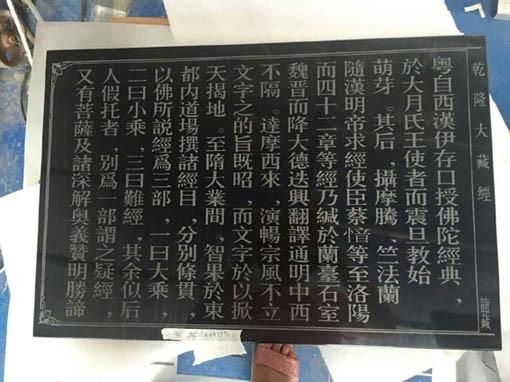 乾隆大藏經
粵自西漢伊存口授佛陀經典，
於大月氏王使者而震旦教始
萌芽。其后，攝摩騰、竺法蘭
隨漢明帝求經使臣蔡愔等至洛陽
而四十二章等經乃緘於蘭臺石室
魏晋而降大德迭興翻譯通明中西
不隔。達摩西來，演暢宗風不立
文字之的旨既昭，而文字於以掀
天揭地。至隋大業間，智果於東
都内道場撰諸經目，分别條貫，
以佛所説經爲三部，一曰大乘，
二曰小乘，三曰雜經，其余似后
人假托者，别爲一部謂之疑經，
又有菩薩及諸深解奥義贊明勝諦
龍藏